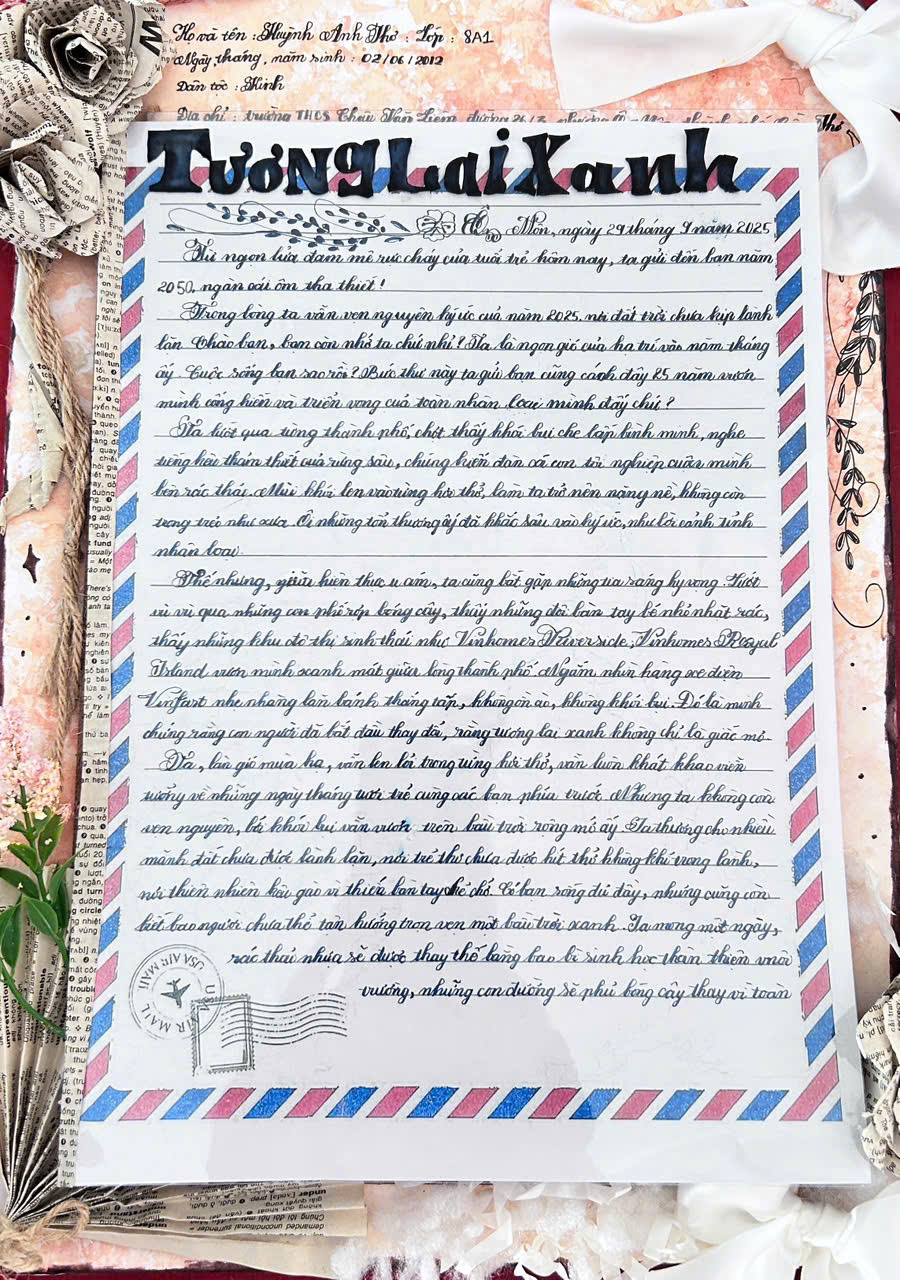 Họ và tên : Huỳnh Anh Thơ : Lớp : 8A1
Ngày tháng, năm sinh : 02/06/2012
Dân tộc : Kinh
Địa chỉ : trường THCS Châu Văn Liêm, đường 26/3, phường Ô Môn, thành phố Cần Thơ
Tương Lai Xanh
Ô Môn, ngày 29 tháng 9 năm 2025
Từ ngọn lửa đam mê rực cháy của tuổi trẻ hôm nay, ta gửi đến bạn năm
2050, ngàn cái ôm tha thiết!
Trong lòng ta vẫn vẹn nguyên ký ức của năm 2025, nơi đất trời chưa kịp lành
lặn. Chào bạn, bạn còn nhớ ta chứ nhỉ? Ta là ngọn gió của hạ trí vào năm tháng
ấy. Cuộc sống bạn sao rồi? Bức thư này ta gửi bạn cũng cách đây 25 năm vươn
mình cống hiến và triển vọng của toàn nhân loại mình đấy chứ?
Ta lướt qua từng thành phố, chợt thấy khói bụi che lấp bình minh, nghe
tiếng kêu thảm thiết của rừng sâu, chứng kiến đàn cá con tội nghiệp cuộn mình
bên rác thải. Mùi khói len vào từng hơi thở, làm ta trở nên nặng nề, không còn
trong trẻo như xưa. Ôi những tổn thương ấy đã khắc sâu vào ký ức, như lời cảnh tỉnh
nhân loại.
Thế nhưng, giữa hiện thực u ám, ta cũng bắt gặp những tia sáng hy vọng. Lướt
vi vu qua những con phố rợp bóng cây, thấy những đôi bàn tay bé nhỏ nhặt rác,
thấy những khu đô thị sinh thái như Vinhomes Riverside, Vinhomes Royal
Island vươn mình xanh mát giữa lòng thành phố. Ngắm nhìn hàng xe điện
Vinfast nhẹ nhàng lăn bánh thẳng tắp, không ồn ào, không khói bụi. Đó là minh
chứng rằng con người đã bắt đầu thay đổi, rằng tương lai xanh không chỉ là giấc mơ.
Ta, làn gió mùa hạ, vẫn len lỏi trong từng hơi thở, vẫn luôn khát khao viễn
tưởng về những ngày tháng tươi trẻ cùng các bạn phía trước. Nhưng ta không còn
vẹn nguyên, bởi khói bụi vẫn vươn trên bầu trời rộng mở ấy. Ta thương cho nhiều
mảnh đất chưa được lành lặn, nơi trẻ thơ chưa được hít thở không khí trong lành,
nơi thiên nhiên kêu gào vì thiếu bàn tay che chở. Có bạn sống đủ đầy, nhưng cũng còn
biết bao người chưa thể tận hưởng trọn vẹn một bầu trời xanh. Ta mong một ngày,
rác thải nhựa sẽ được thay thế bằng bao bì sinh học thân thiện môi
trương, những con đường sẽ phủ bóng cây thay vì toàn
USA AIR MAIL
AIR MAIL